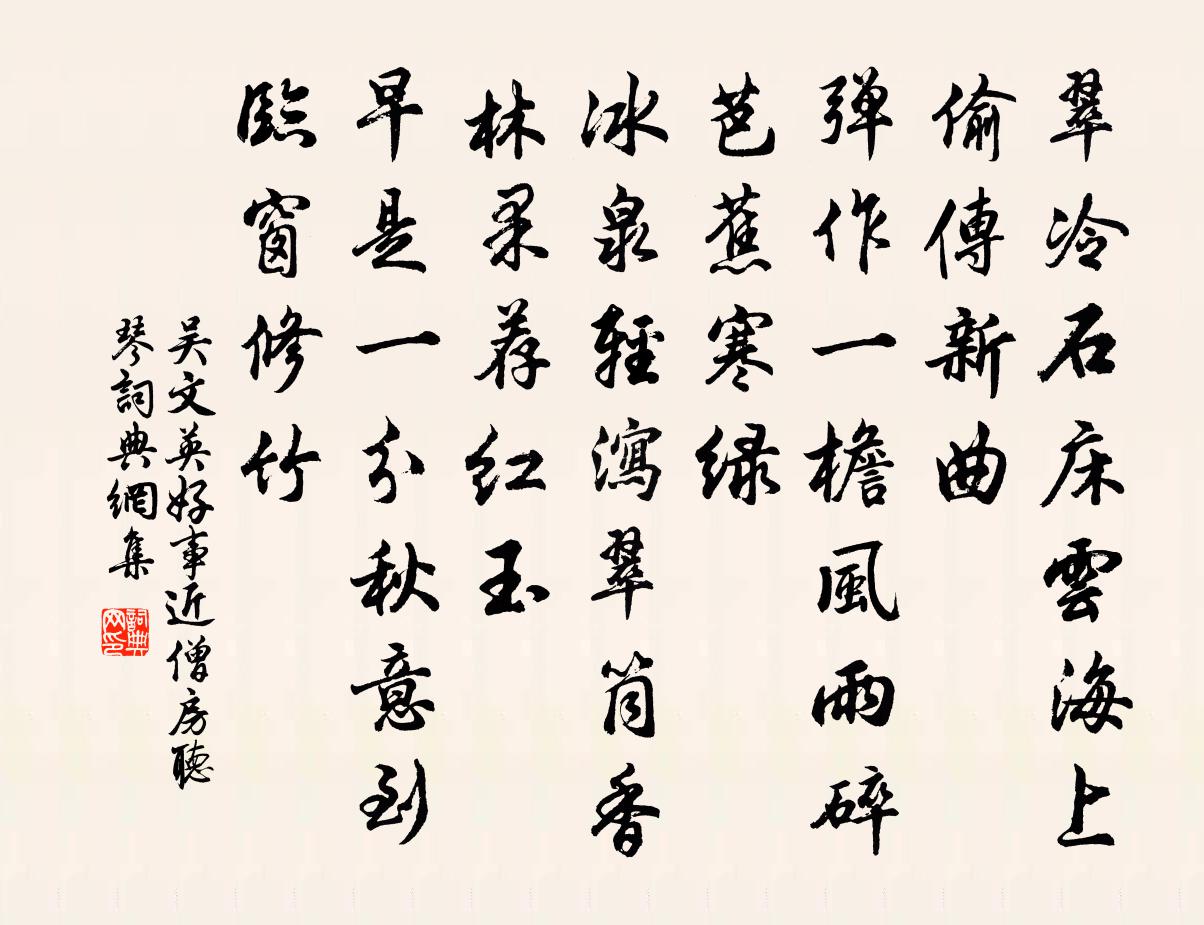 翠冷石床雲海上
偷傳新曲
弹作一檐風雨碎
芭蕉寒緑
冰泉輕瀉翠筒香
林果荐红玉
早是一分秋意到
臨窗修竹
吴文英好事近僧房聽
琴詞典網集
詞典
网印